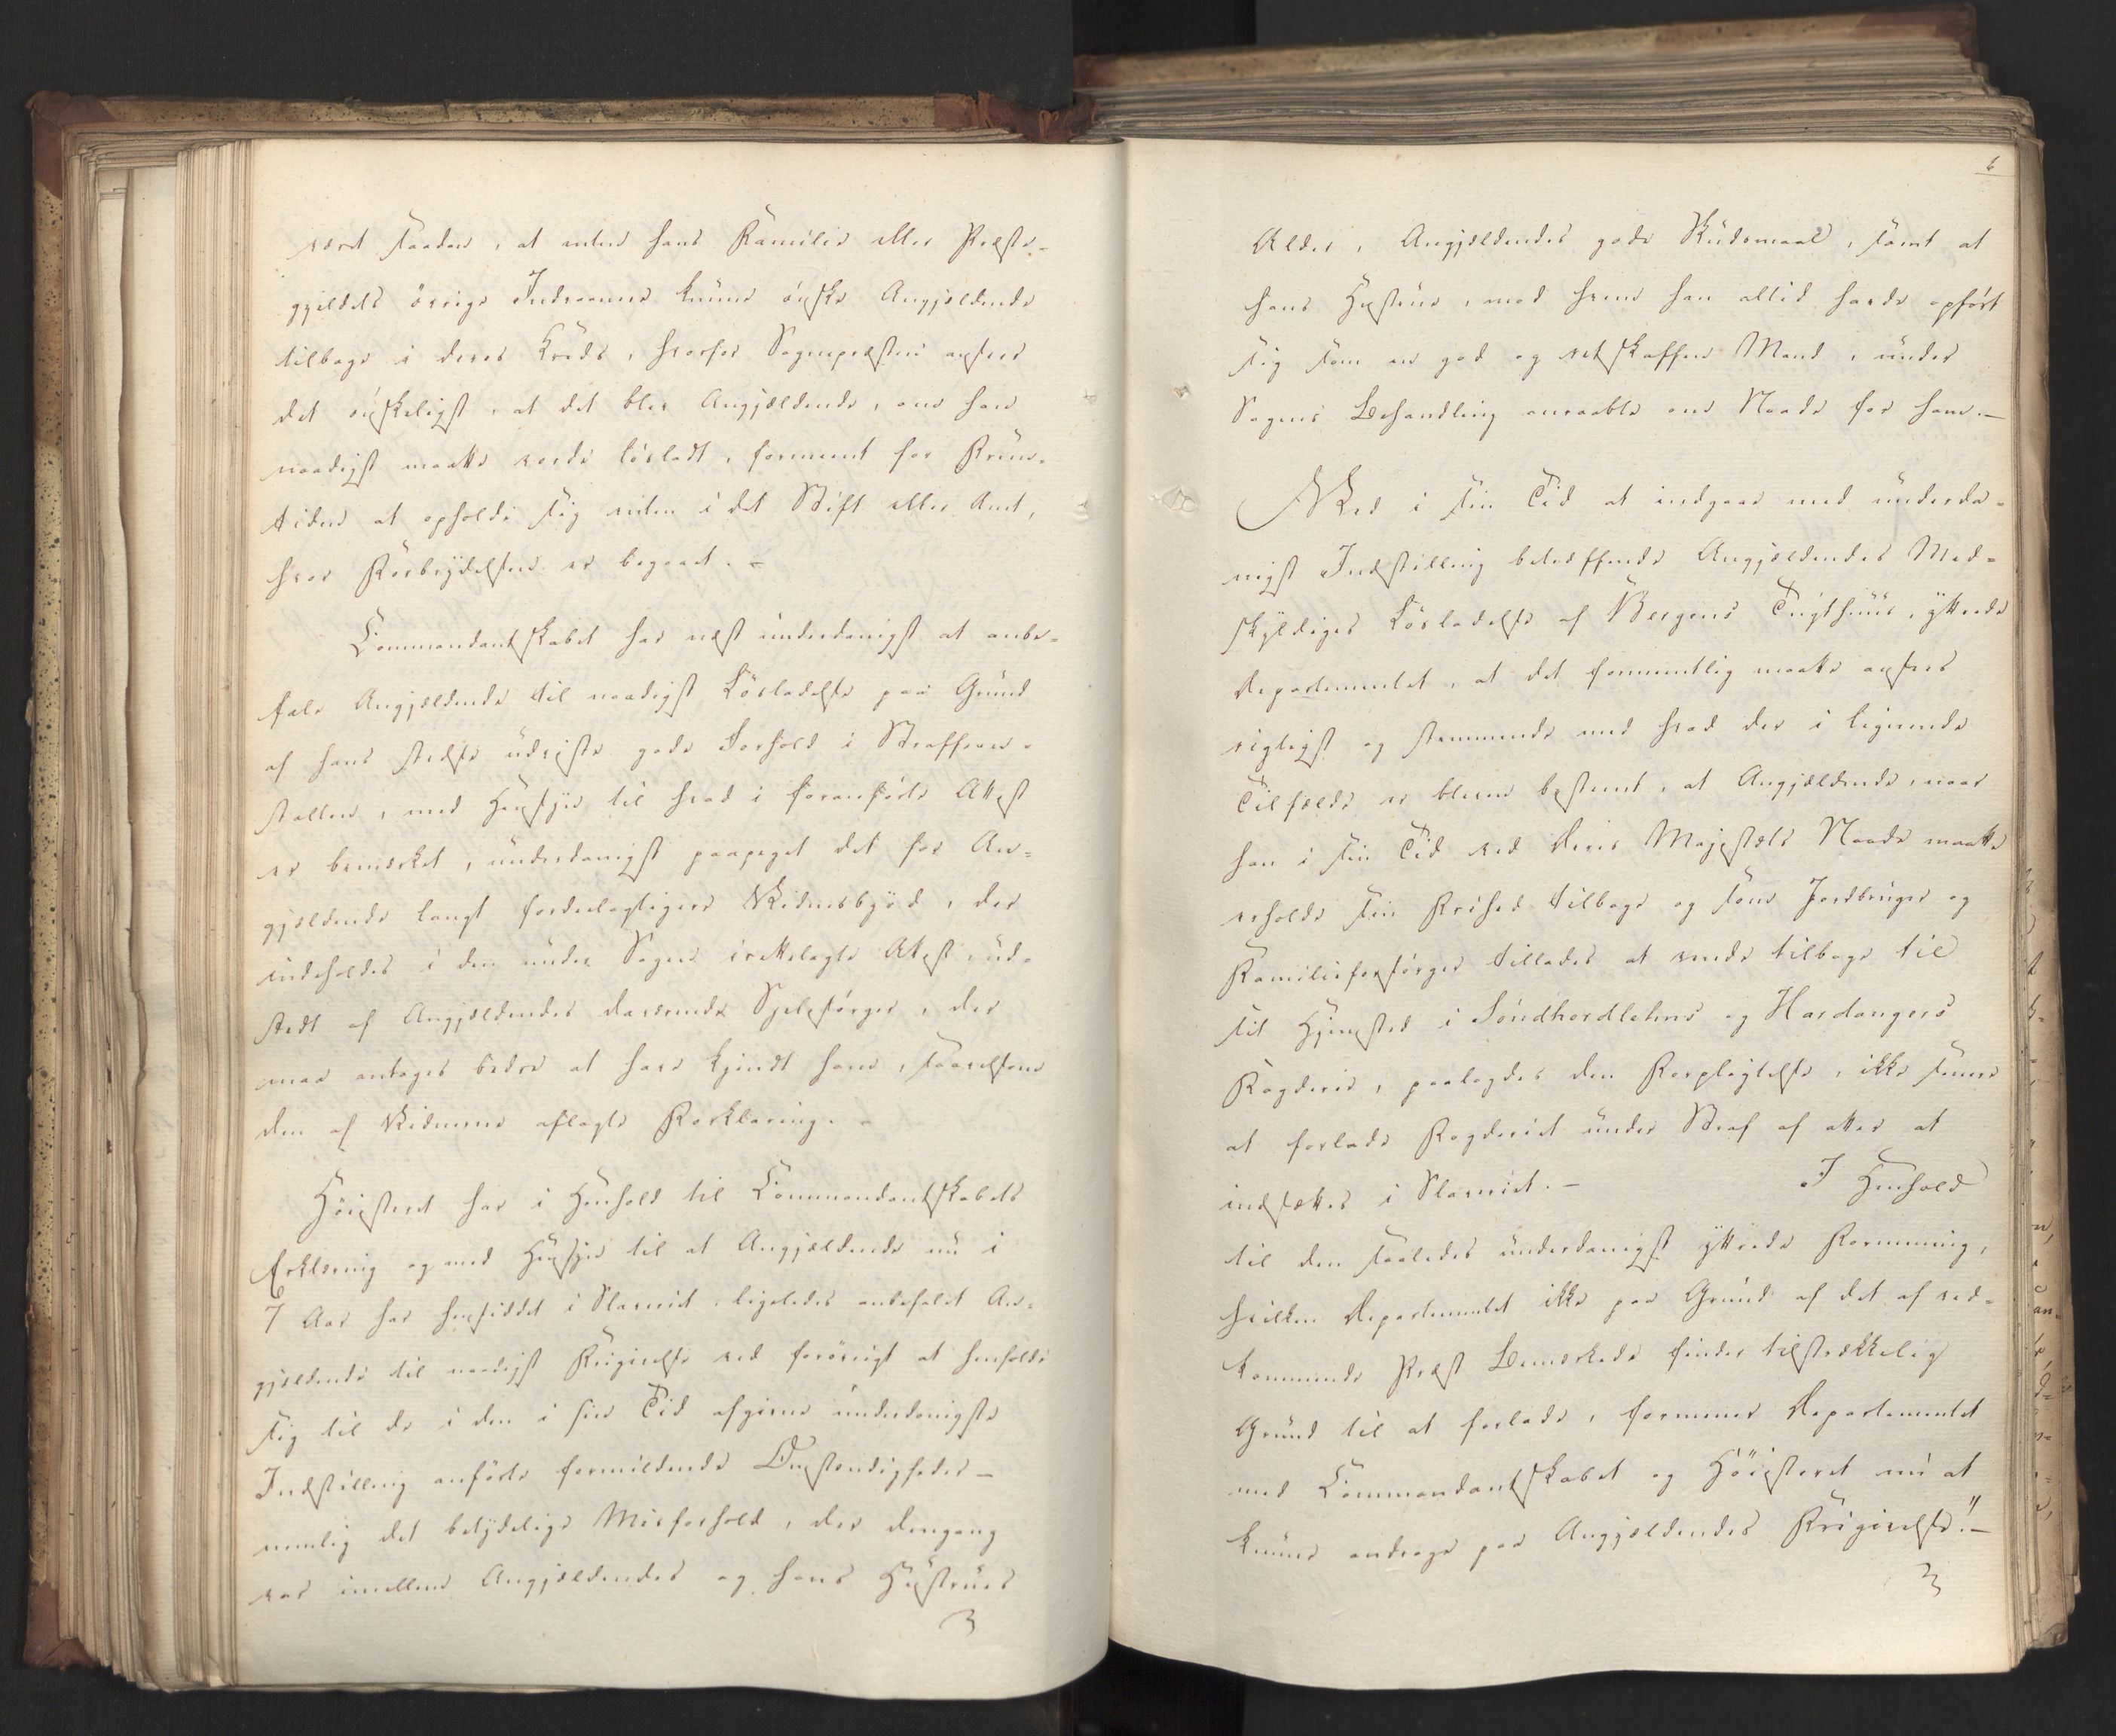 været saadan, at enten hans Familie eller Præste-
gjeldets övrige Indvaanere kunne önske Angjeldende
tilbage i deres Kreds, hvorfor Sognepræsten anseer
det önskeligst, at det blev Angjældende, om han
naadigst maatte vorde lösladt, formeent for Frem-
tiden at opholde sig enten i det Stift eller Amt,
hvor Forbrydelsen er begaaet. -
Commandantskabet har næst underdanigst at anbe-
fale Angjeldende til naadigst Lösladelse paa Grund
af hans stedse udviste gode Forhold i Straffean-
stalten, med Hensyn til hvad i foranförte Attest
er bemærket, underdanigst paapeget det for An-
gjældende langt fordeelagtigere Vidnesbyrd, der
indeholdes i den under Sagen irettelagte Attest, ud-
stedt af Angjældendes daværende Sjelesörger, der
maa antages bedre at have kjendt ham, saavelsom
den af Vidnerne aflagte Forklaring. -
Höiesteret har i Henhold til Commandantskabets
Erklæring og med Hensyn til at Angjældende nu i
7 Aar har hensiddet i Slaveriet, ligeledes anbefalet An-
gjældende til naadigst Frigivelse ved forövrigt at henholde
sig til de i den i sin Tid afgivne underdanigste
Indstilling anförte formildende Omstændigheder -
nemlig det betydelige Misforhold, der dengang
var imellem Angjældendes og hans Hustrues
6
Alder, Angjældendes gode Skudsmaal, samt at
hans Hustrue, mod hvem han altid havde opfört
sig som en god og retskaffen Mand, under
Sagens Behandling anraabte om Naade for ham. -
Ved i sin Tid at indgaae med underda-
nigst Indstilling betræffende Angjældendes Med-
skyldiges Lösladelse af Bergens Tugthuus, yttrede
Departementet, at det formentlig maatte ansees
rigtigst og stemmende med hvad der i lignende
Tilfælde er bleven bestemt, at Angjældende, naar
han i sin Tid ved Deres Majestæts Naade maatte
erholde sin Frihed tilbage og som Jordbruger og
Familieforsörger tillades at vende tilbage til
sit Hjemsted i Söndhordlehns og Hardangers
Fogderie, paalagdes den Forpligtelse, ikke siden
at forlade Fogderiet under Straf af atter at
indsættes i Slaveriet. - I Henhold
til den saaledes underdanigst yttrede Formening,
hvilken Departementet ikke paa Grund af det af ved-
kommende Præst Bemærkede finder tilstrækkelig
Grund til at forlade, formener Departementet
med Commandantskabet og Höiesteret nu at
kunne andrage paa Angjældendes Frigivelse." -